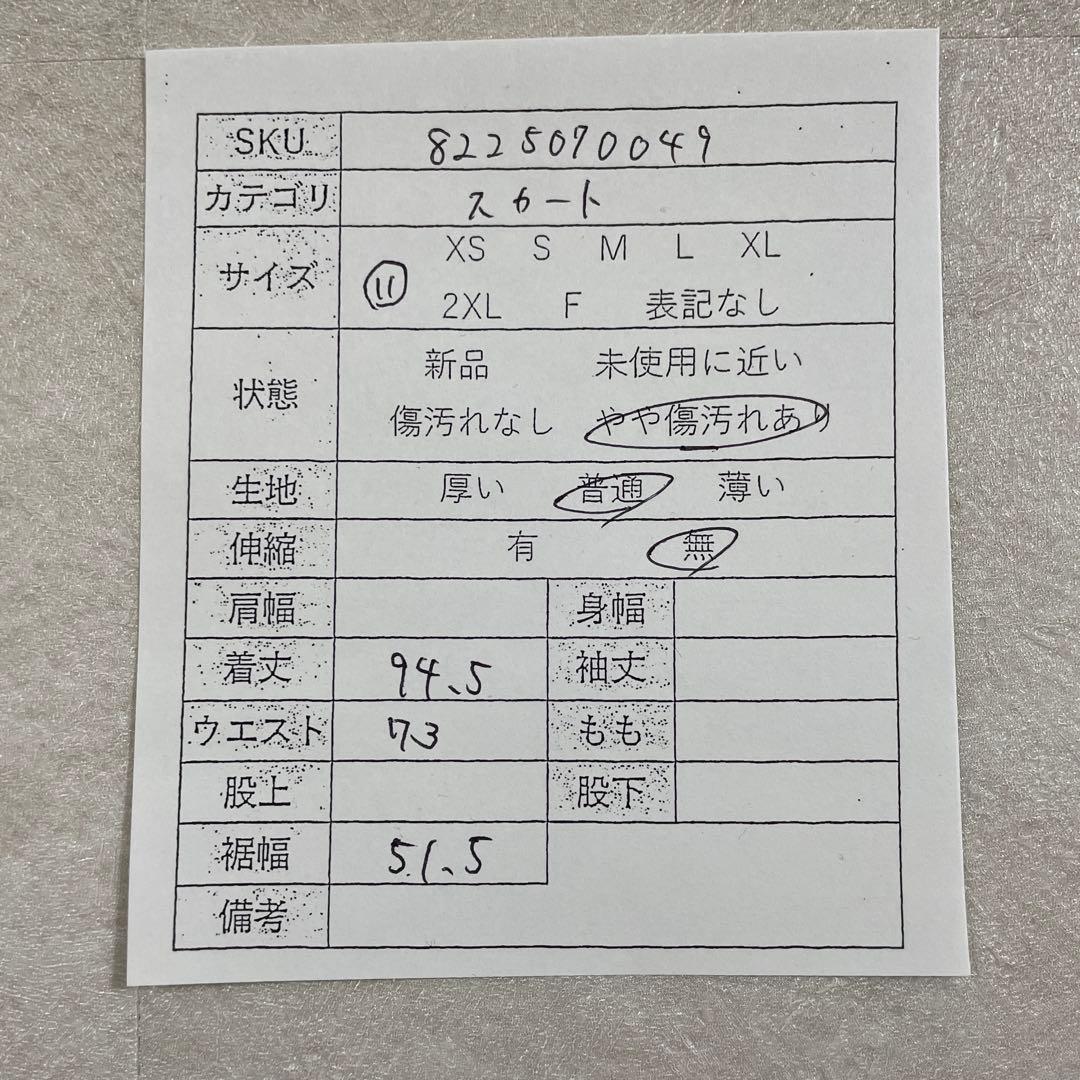 SKU 8225070049
カテゴリ スカート
サイズ 11 XS S M L XL
2XL F 表記なし
状態 新品 未使用に近い
傷汚れなし やや傷汚れあり
生地 厚い 普通 薄い
伸縮 有 無
肩幅 身幅
着丈 94.5 袖丈
ウエスト 73 もも
股上 股下
裾幅 51.5
備考